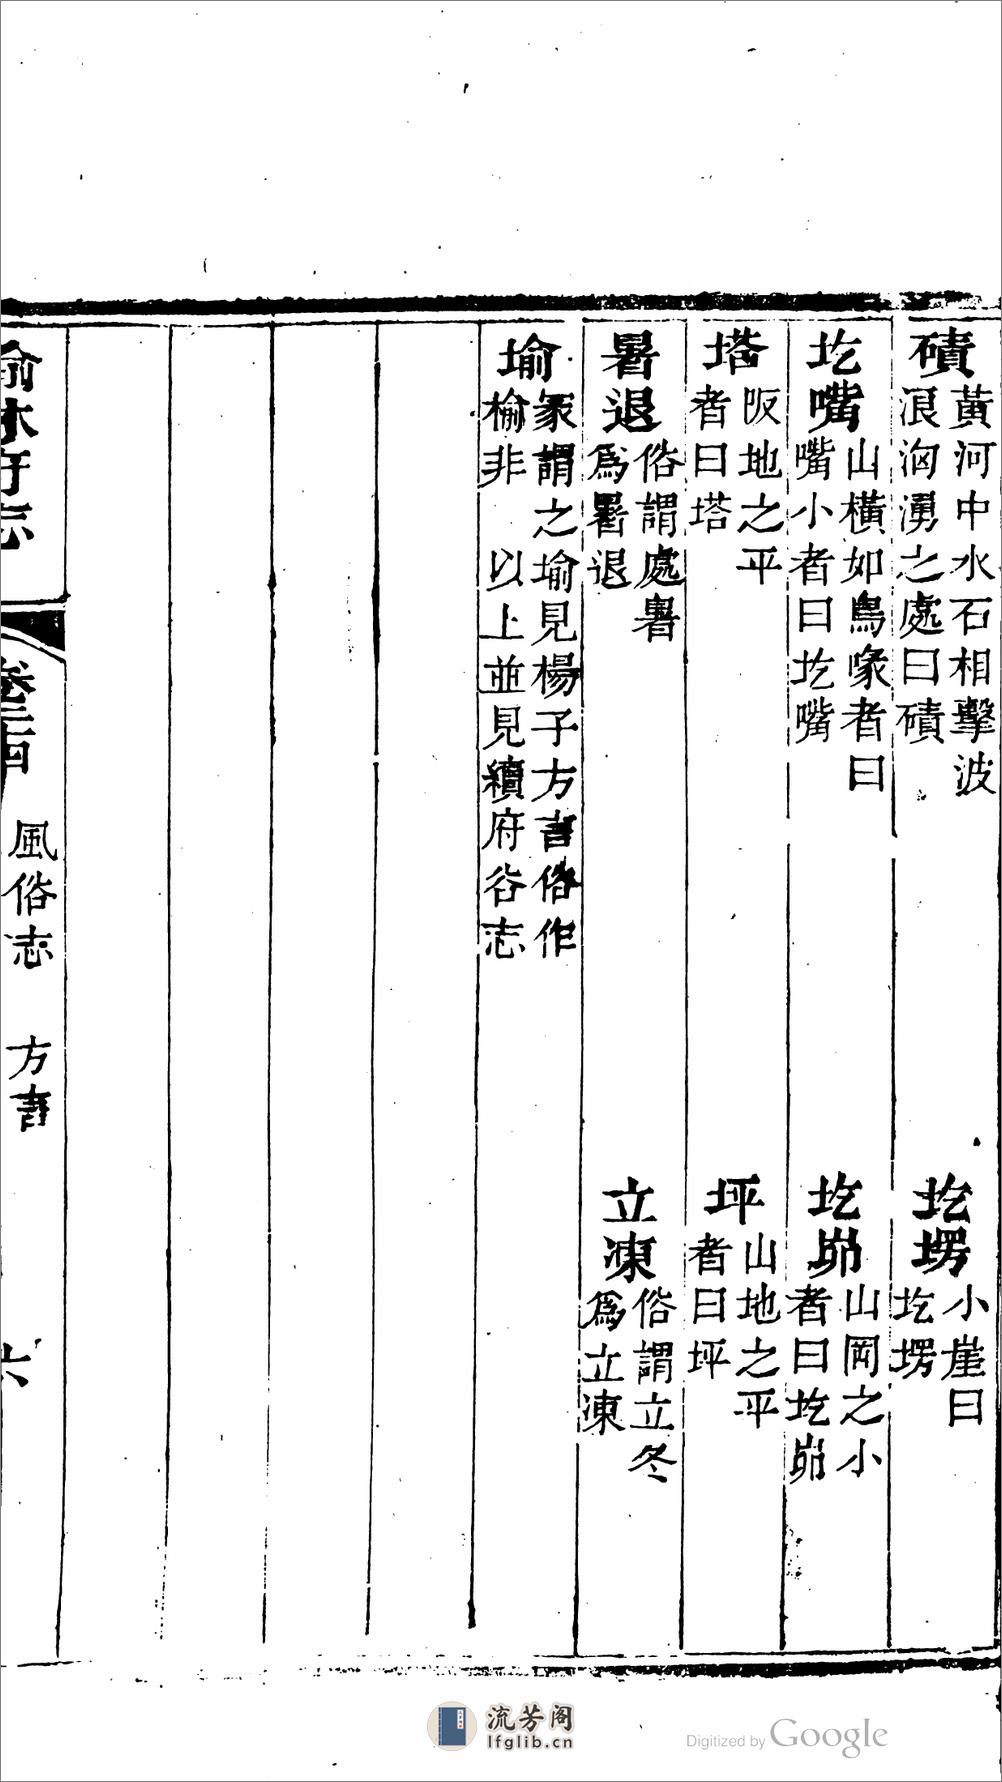 磧黃河中水石相擊波
浪洶湧之處曰磧
圪塄小崖曰
圪塄
圪嘴山橫如鳥喙者曰
嘴小者曰圪嘴
圪峁山岡之小
者曰圪峁
塔阪地之平
者曰塔
坪山地之平
者曰坪
暑退俗謂處暑
爲暑退
立凍俗謂立冬
爲立凍
堬冢謂之堬見楊子方言俗作
榆非 以上並見續府谷志
榆林府志 卷二十四 風俗志 方言 六
流芳阁
lfglib.cn
Digitized by Google